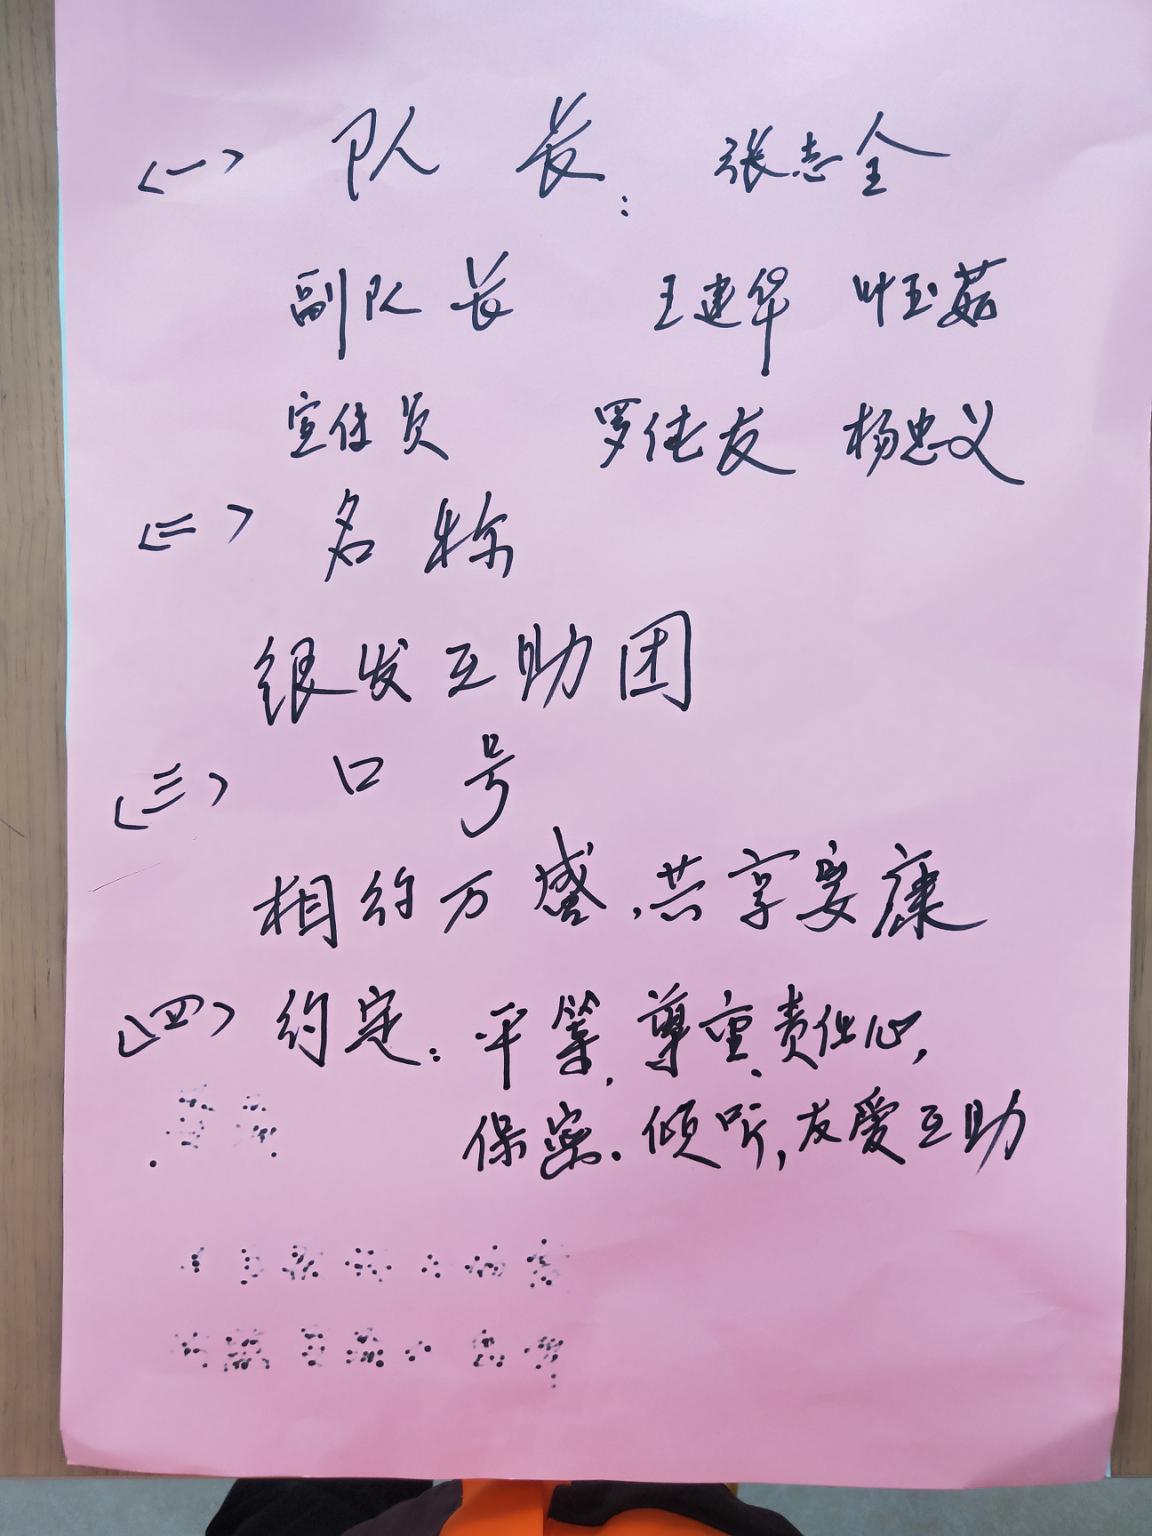 (一) 队长：张志全
副队长 王建华 叶玉茹
宣传员 罗佳友 杨忠义
(二) 名称
银发互助团
(三) 口号
相约万盛,共享安康
(四) 约定：平等,尊重、责任心,
保密.倾听,友爱互助